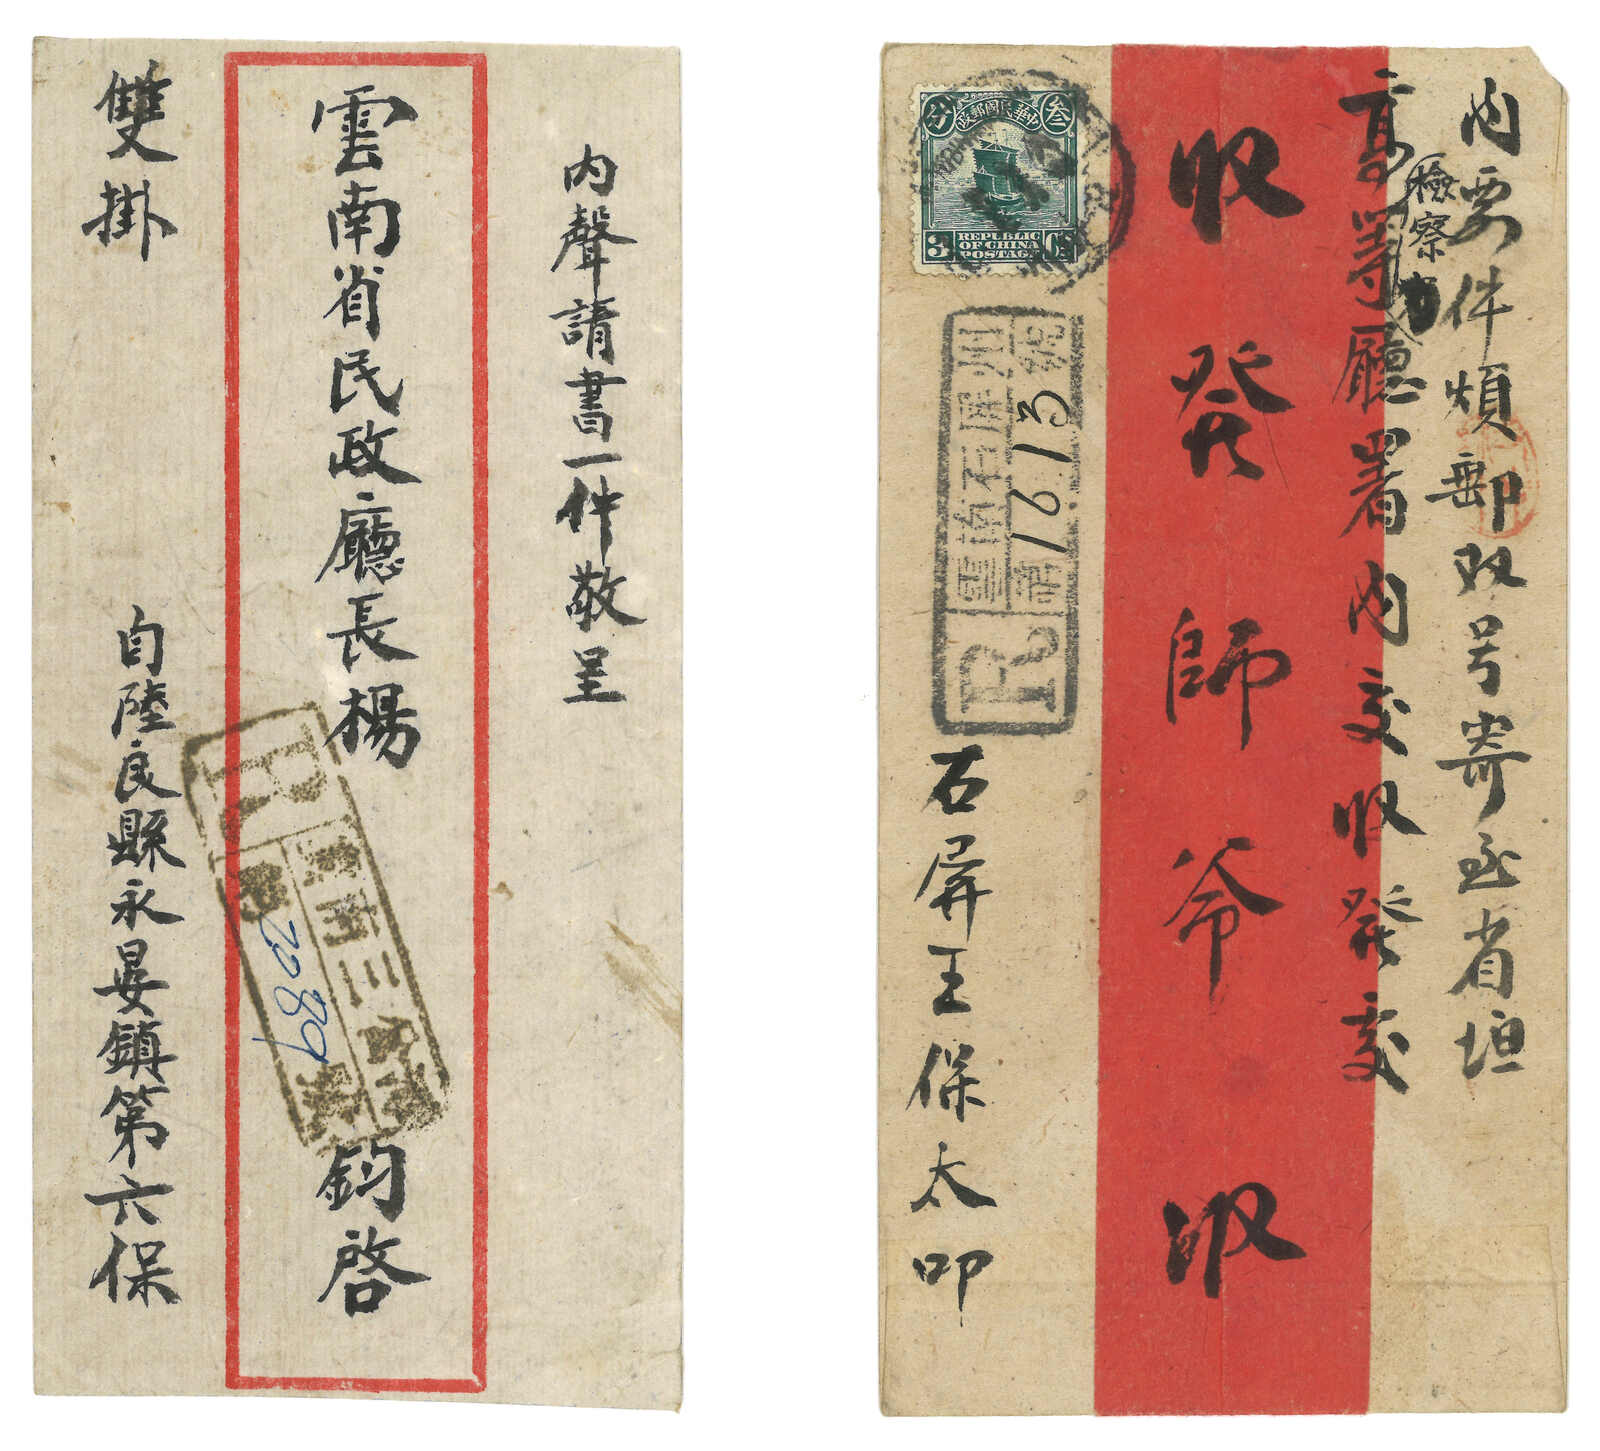 內聲請書一件敬呈
雲南省民政廳長楊 鈞啓
雙掛
自陸良縣永晏鎮第六保
R
雲南三
2089
內要件煩郵双号寄至省垣
高等廳署內交收發交
檢察
收發師爷收
中華民國郵政
叁
分
3
REPUBLIC
OF CHINA
POSTAGE
雲南石屏州
號
1613
R
石屏王保太叩